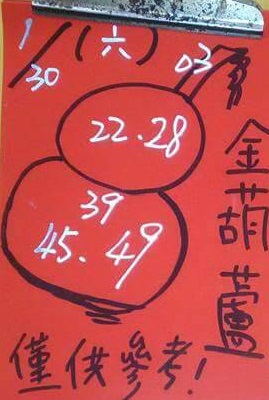 1/30 (六)
03
22.28
39
45.49
金葫蘆
僅供參考!